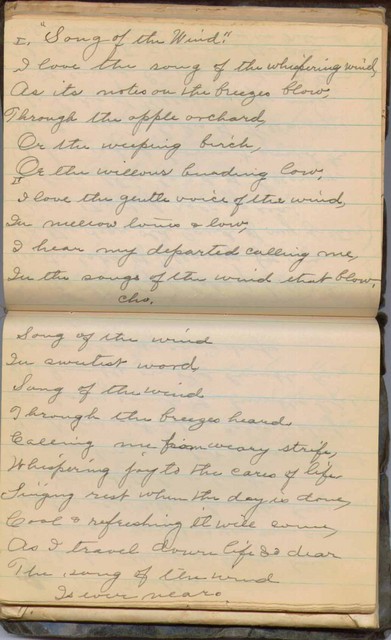 I. "Song of the Wind".
I love the song of the whispering wind,
As its notes on the breezes blow,
Through the apple orchard,
Or the weeping birch,
Or the willows bending low,
II
I love the gentle voice of the wind,
In mellow tones & low,
I hear my departed calling me,
In the songs of the wind that blow,
cho.
Song of the wind
In sweetest word
Song of the wind
Through the breezes heard
Calling me from weary strife,
Whispering joy to the cares of life
Singng rest when the day is done,
Cool & refreshing it will come,
As I travel down life so dear
The song of the wind
Is ever near.